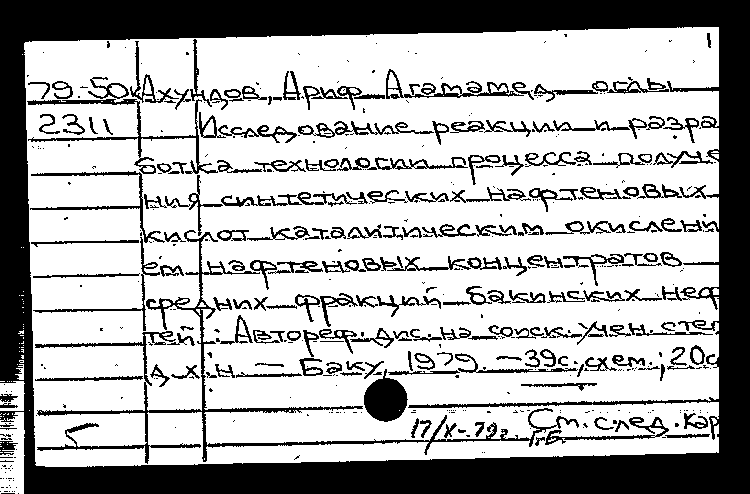 79-50к Ахундов, Ариф Агамамед оглы
2311 Исследование реакции и разра
ботка технологии процесса получе
ния синтетических нафтеновых
кислот каталитическим окислени
ем нафтеновых концентратов
средних фракций бакинских неф
тей : Автореф. дис. на соиск. учен. степ
д.х.н. — Баку, 1979. — 39с., схем.; 20с
17/X-79г. См. след. кар
Г.Б.